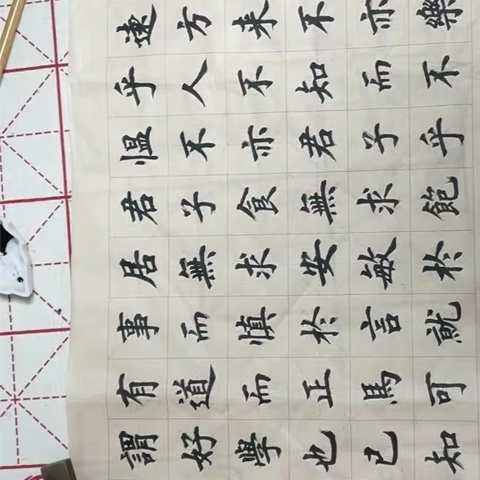 遠方来不亦樂
乎人不知而不
愠不亦君子乎
君子食無求飽
居無求安敏於
事而慎於言就
有道而正焉可
謂好學也已知